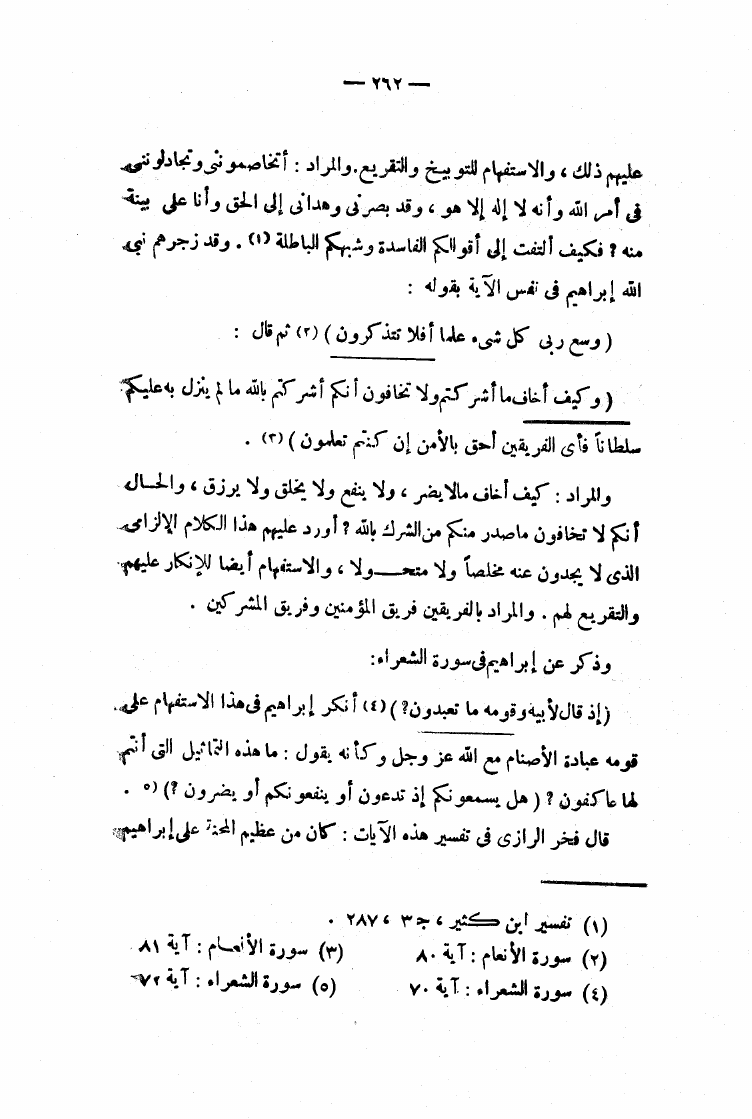 — ٢٦٢ —
عليهم ذلك ، والاستفهام للتوبيخ والتقريع.والمراد : أتخاصموننى وتجادلوننى
فى أمر الله وأنه لا إله إلا هو ، وقد بصرنى وهدانى إلى الحق وأنا على بينة
منه ؟ فكيف ألتفت إلى أقوالكم الفاسدة وشبهكم الباطلة (١) . وقد زجرهم نبى
الله إبراهيم فى نفس الآية بقوله :
( وسع ربى كل شىء علما أفلا تتذكرون ) (٢) ثم قال :
( وكيف أخاف ما أشركتم ولا تخافون أنكم أشركتم بالله ما لم ينزل به عليكم
سلطاناً فأى الفريقين أحق بالأمن إن كنتم تعلمون ) (٣) .
والمراد : كيف أخاف مالا يضر ، ولا ينفع ولا يخلق ولا يرزق ، والحال
أنكم لا تخافون ماصدر منكم من الشرك بالله ؟ أورد عليهم هذا الكلام الإلزامى
الذى لا يجدون عنه مخلصاً ولا متحولا ، والاستفهام أيضا للإنكار عليهم
والتقريع لهم . والمراد بالفريقين فريق المؤمنين وفريق المشركين .
وذكر عن إبراهيم فى سورة الشعراء:
(إذ قال لأبيه وقومه ما تعبدون؟) (٤) أنكر إبراهيم فى هذا الاستفهام على
قومه عبادة الأصنام مع الله عز وجل وكأنه يقول : ما هذه التماثيل التى أنتم
لها عاكفون ؟ ( هل يسمعونكم إذ تدعون أو ينفعونكم أو يضرون ؟) (٥ .
قال فخر الرازى فى تفسير هذه الآيات : كان من عظيم المحنة على إبراهيم
(١) تفسير ابن كثير ، جـ ٣ ، ٢٨٧ .
(٢) سورة الأنعام : آية ٨٠ (٣) سورة الأنعام : آية ٨١
(٤) سورة الشعراء : آية ٧٠ (٥) سورة الشعراء : آية ٧٢